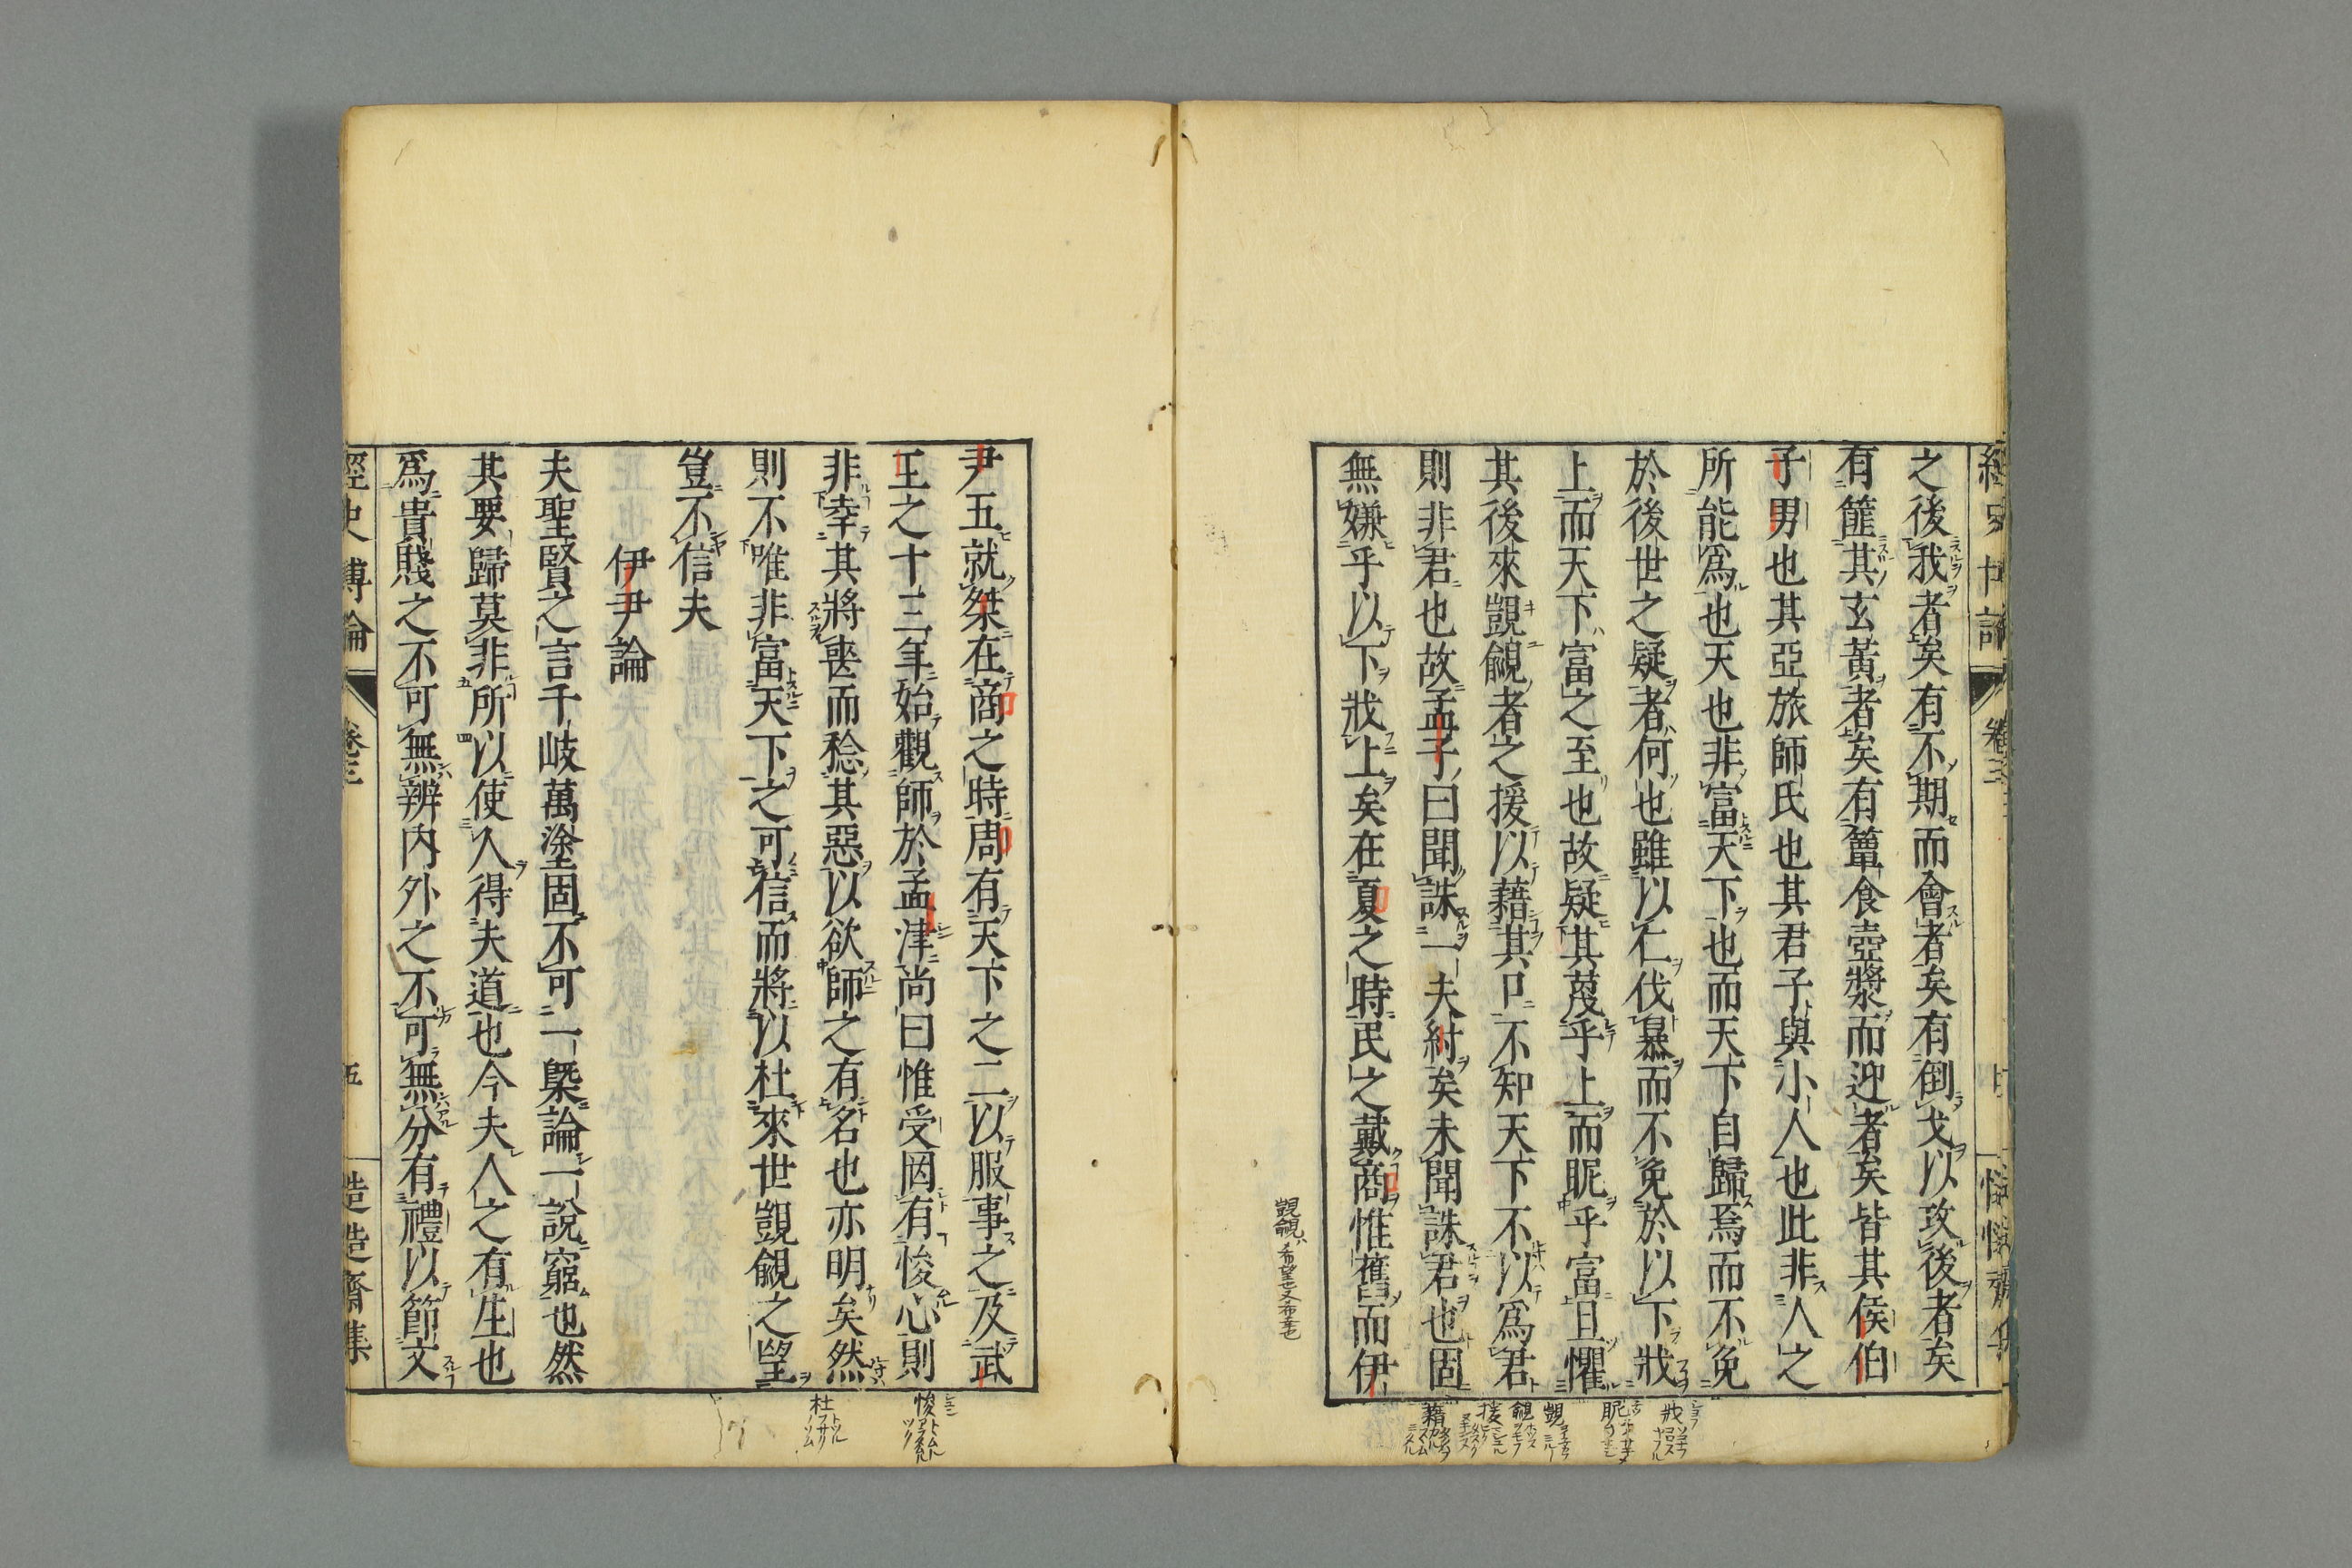 之後我者矣有不期而會者矣有倒戈以攻後者矣
有篚其玄黃者矣有簞食壺漿而迎者矣皆其侯伯
子男也其亞旅師氏也其君子與小人也此非人之
所能爲也天也非富天下也而天下自歸焉而不免
於後世之疑者何也雖以仁伐暴而不免於以下戕
上而天下富之至也故疑其蔑乎上而昵乎富且懼
其後來覬覦者之援以藉其口不知天下不以爲君
則非君也故孟子曰聞誅一夫紂矣未聞誅君也固
無嫌乎以下戕上矣在夏之時民之戴商惟舊而伊
覬覦ハ希望也又希幸也
尹五就桀在商之時周有天下之二以服事之及武
王之十三年始觀師於孟津尚曰惟受罔有悛心則
非幸其將喪而稔其惡以欲師之有名也亦明矣然
則不唯非富天下之可信而將以杜來世覬覦之望
豈不信夫
伊尹論
夫聖賢之言千岐萬塗固不可一槩論一說窮也然
其要歸莫非所以使人得夫道也今夫人之有生也
爲貴賤之不可無辨內外之不可無分有禮以節文
經史博論
卷三
五
慥慥齋集